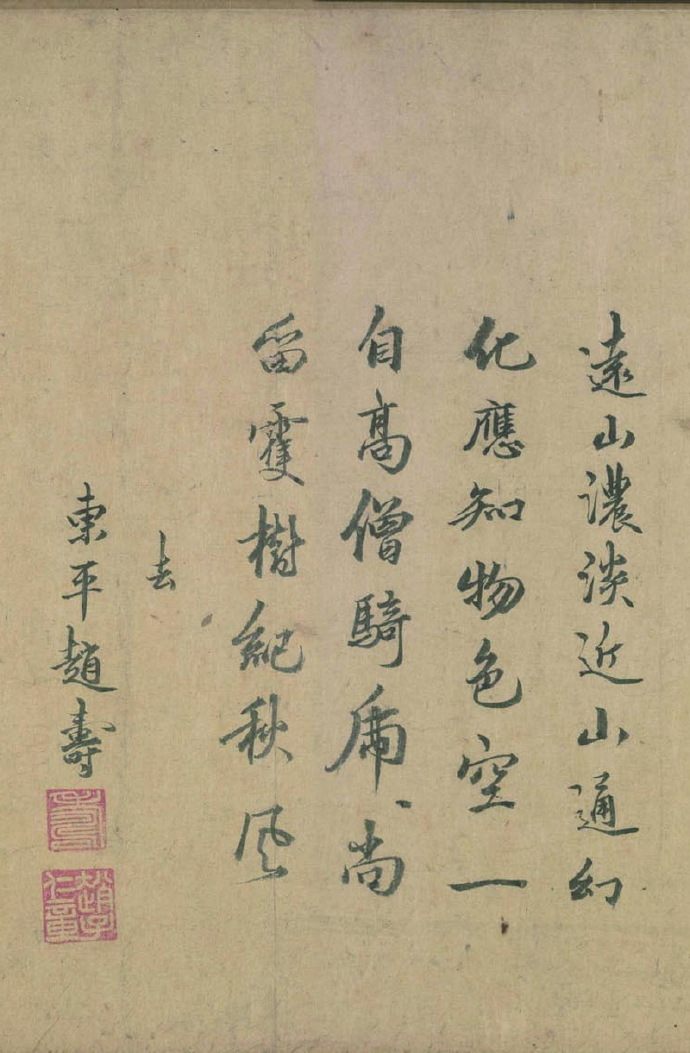 遠山濃淡近山通幻
化應知物色空一
自高僧騎虎、尚
留雙樹紀秋風
去
東平趙壽